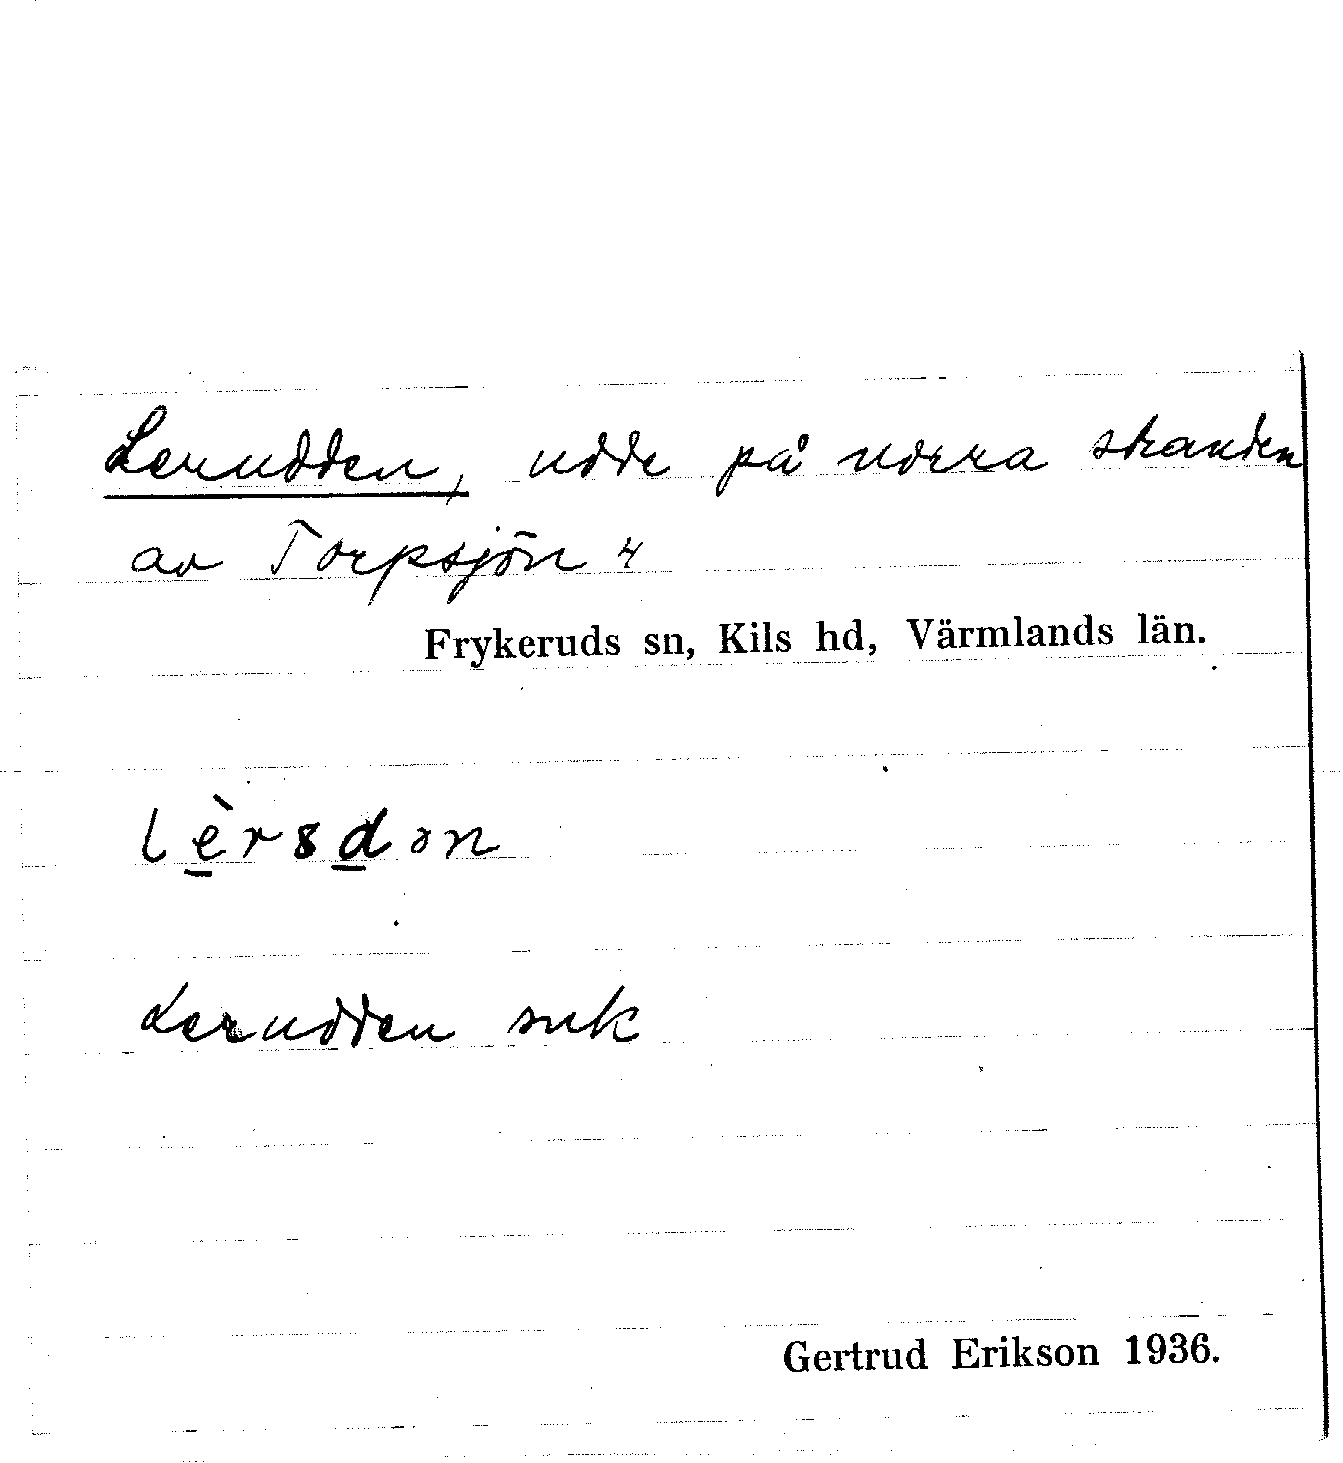 Lerudden, udde på norra stranden
av Torpsjön 4
Frykeruds sn, Kils hd, Värmlands län.
lèrsdən
Lerudden suk
Gertrud Erikson 1936.